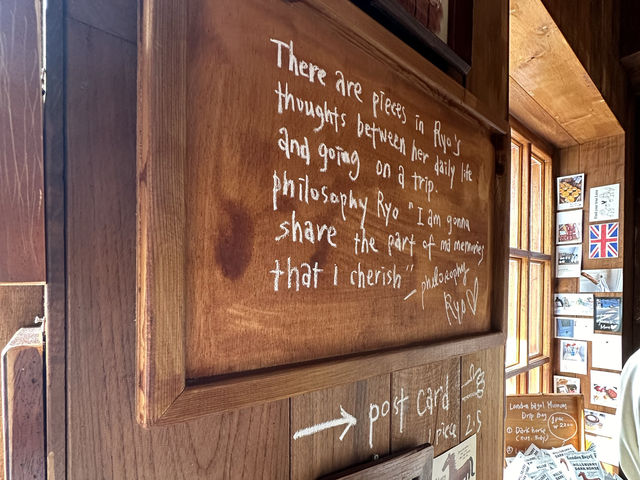 There are pieces in Ryo's
thoughts between her daily life
and going on a trip.
philosophy Ryo "I am gonna
share the part of ma memories
that I cherish"
– philosophy
Ryo ♡
→ post card
1 piece 2.5
London bagel Museum
Drip Bag
① Dark horse